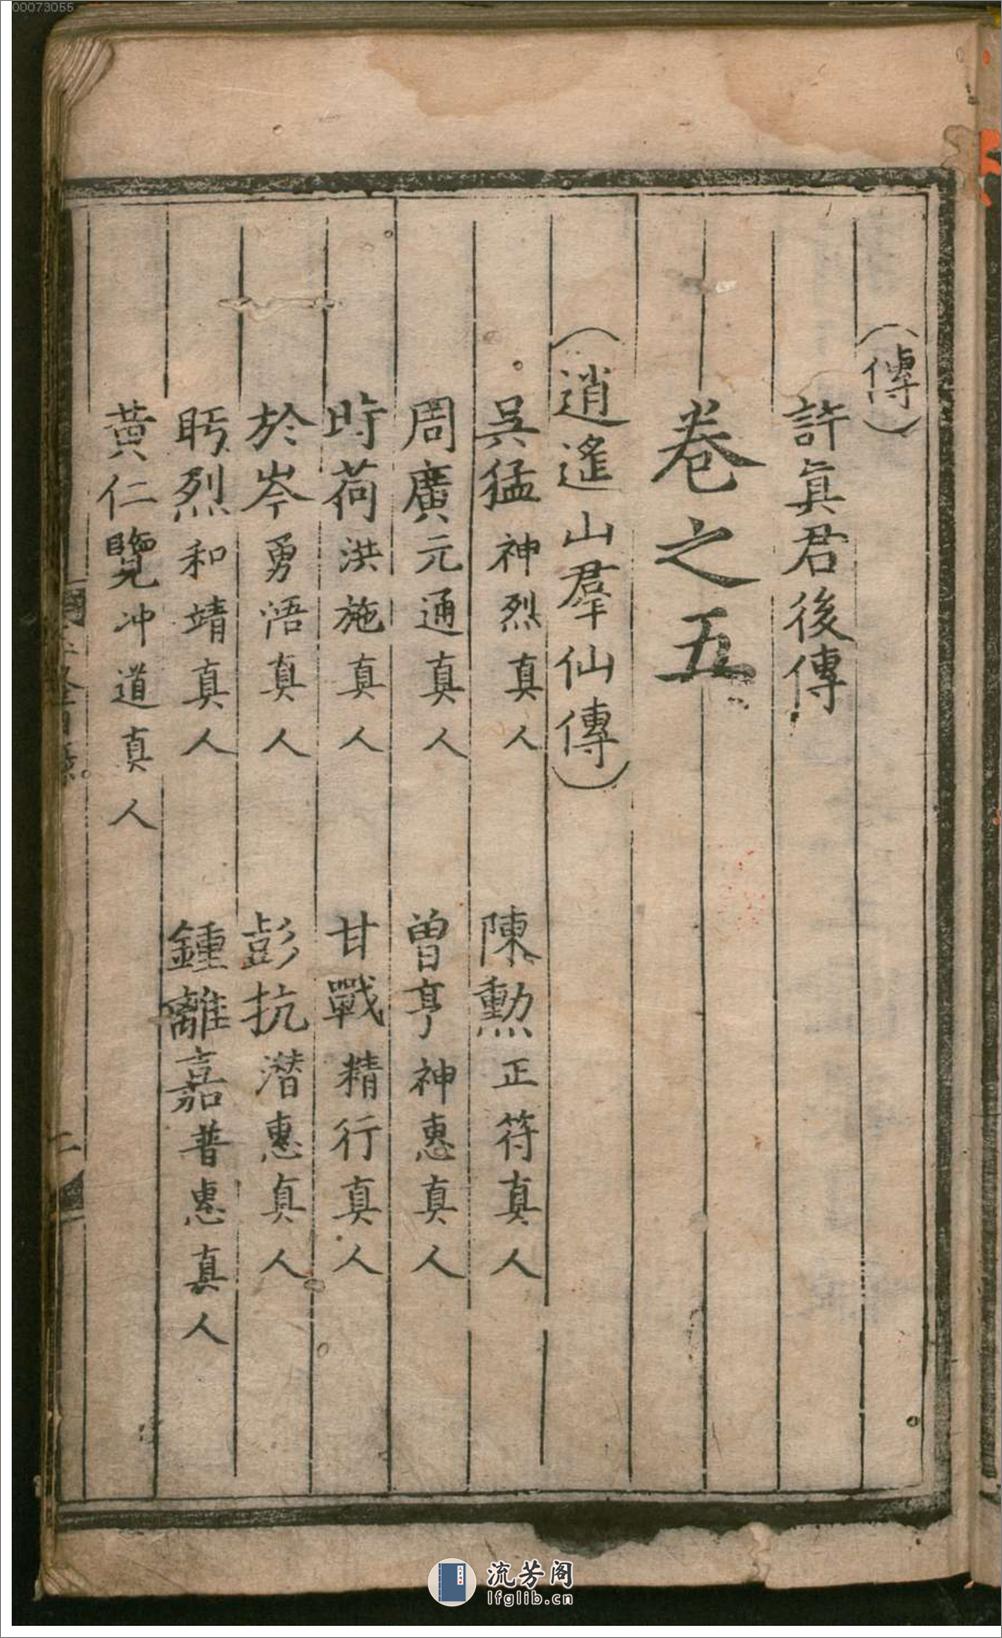 00073055
（傳）
許真君後傳
卷之五
（逍遙山羣仙傳）
吳猛神烈真人 陳勲正符真人
周廣元通真人 曾亨神惠真人
時荷洪施真人 甘戰精行真人
於岑勇浯真人 彭抗潛惠真人
盱烈和靖真人 鍾離嘉普惠真人
黃仁覽冲道真人
二
流芳阁
lfglib.cn